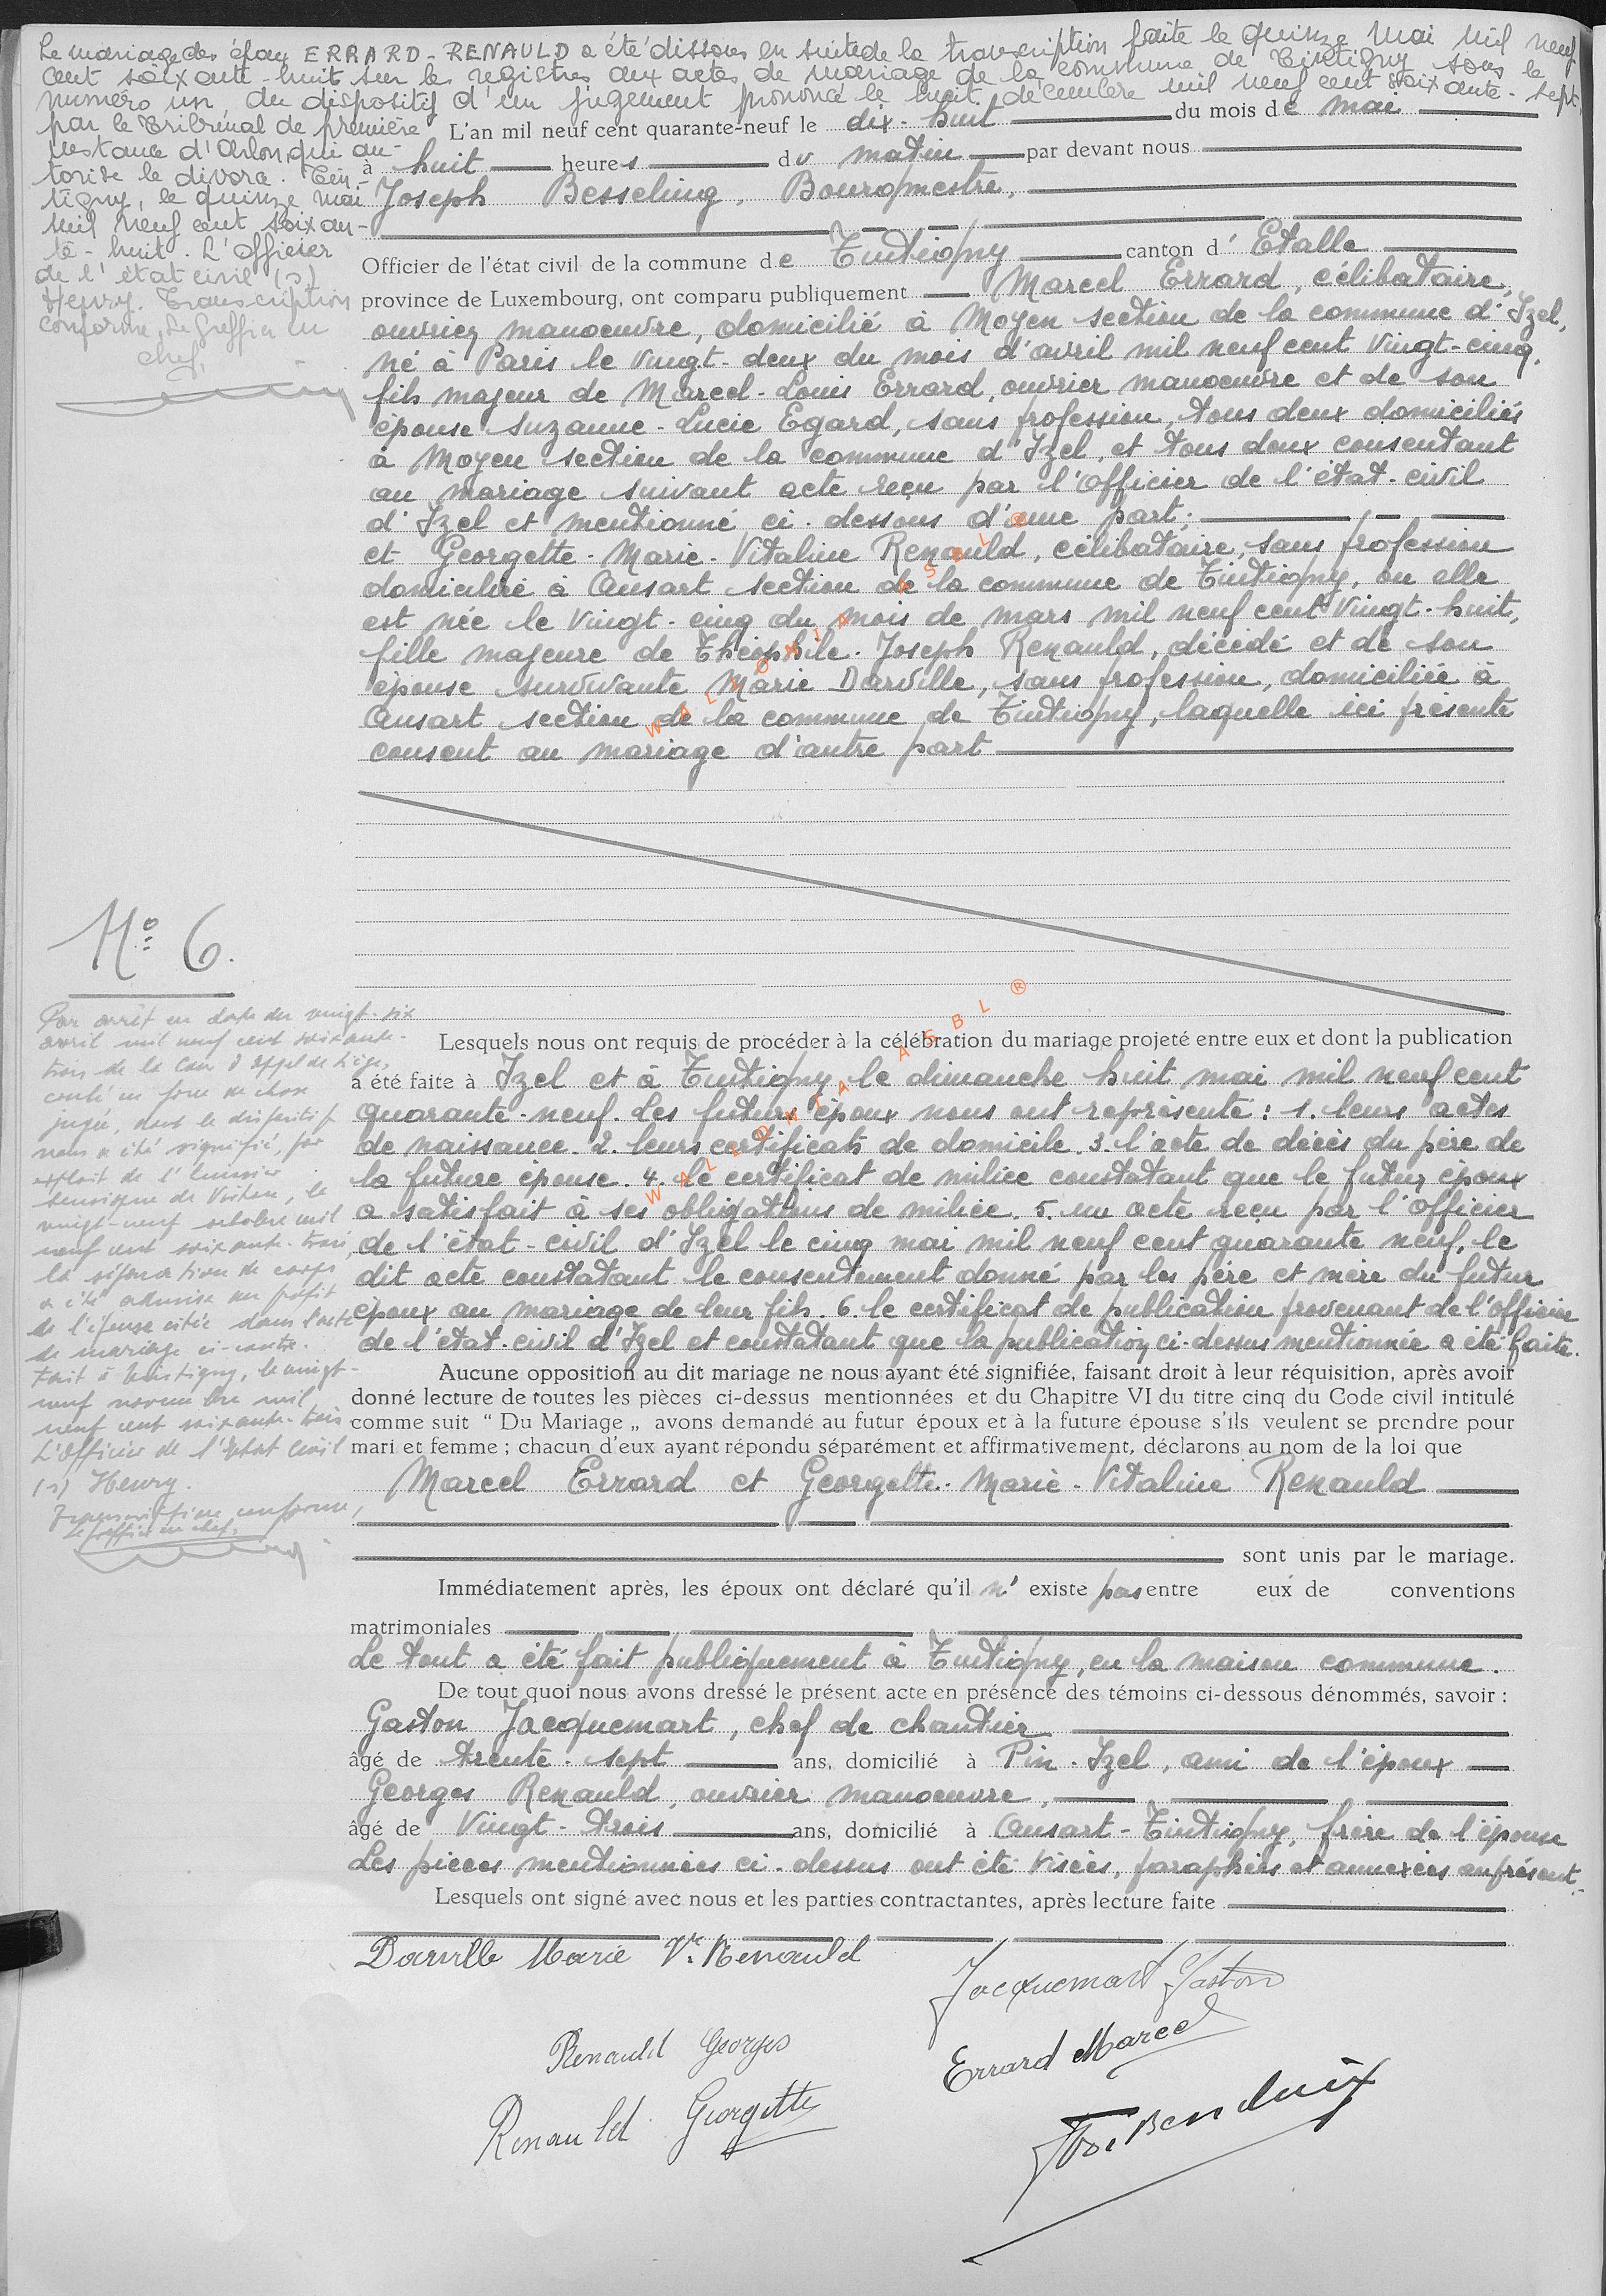 Le mariage des époux ERRARD-RENAULD a été dissous en suite de la transcription faite le quinze mai mil neuf
cent soixante-huit sur les registres aux actes de mariage de la commune de Tintigny sous le
numéro un, du dispositif d'un jugement prononcé le huit décembre mil neuf cent soixante-sept
par le Tribunal de première
instance d'Arlon, qui au-
torise le divorce. Tin-
tigny, le quinze mai
mil neuf cent soixan-
te-huit. L'officier
de l'état civil (s)
Henry. Transcription
conforme, Le Greffier en
chef,
L'an mil neuf cent quarante-neuf le dix-huit du mois de mai
à huit heures du matin par devant nous
Joseph Besseling, Bourgmestre,
Officier de l'état civil de la commune de Tintigny canton d'Etalle
province de Luxembourg, ont comparu publiquement Marcel Errard, célibataire,
ouvrier manoeuvre, domicilié à Moyen section de la commune d'Izel,
né à Paris le vingt-deux du mois d'avril mil neuf cent vingt-cinq,
fils majeur de Marcel-Louis Errard, ouvrier manoeuvre et de son
épouse Suzanne-Lucie Egard, sans profession, tous deux domiciliés
à Moyen section de la commune d'Izel, et tous deux consentant
au mariage suivant acte reçu par l'officier de l'état-civil
d'Izel et mentionné ci-dessous d'une part;
et Georgette-Marie-Vitaline Renauld, célibataire, sans profession
domiciliée à Ansart section de la commune de Tintigny, ou elle
est née le vingt-cinq du mois de mars mil neuf cent vingt-huit,
fille majeure de Théophile-Joseph Renauld, décédé et de son
épouse survivante Marie Darville, sans profession, domiciliée à
Ansart section de la commune de Tintigny, laquelle ici présente
consent au mariage d'autre part
WALLONIA ASBL ®
No 6.
Par arrêt en date du vingt-six
avril mil neuf cent soixante-
trois de la Cour d'Appel de Liège,
coulé en force de chose
jugée, dont le dispositif
nous a été signifié, par
exploit de l'huissier
de Virton, le
vingt-neuf octobre mil
neuf cent soixante-trois
la séparation de corps
a été admise au profit
de l'épouse citée dans l'acte
de mariage ci-contre.
Fait à Tintigny, le vingt-
neuf novembre mil
neuf cent soixante-trois
L'Officier de l'Etat Civil
(s) Henry.
Transcription conforme,
Le Greffier en chef,
Lesquels nous ont requis de procéder à la célébration du mariage projeté entre eux et dont la publication
a été faite à Izel et à Tintigny le dimanche huit mai mil neuf cent
quarante-neuf. Les futurs époux nous ont représenté : 1. leurs actes
de naissance. 2. leurs certificats de domicile. 3. l'acte de décès du père de
la future épouse. 4. le certificat de milice constatant que le futur époux
a satisfait à ses obligations de milice. 5. un acte reçu par l'officier
de l'état-civil d'Izel le cinq mai mil neuf cent quarante neuf, le
dit acte constatant le consentement donné par les père et mère du futur
époux au mariage de leur fils. 6. le certificat de publication provenant de l'officier
de l'état-civil d'Izel et constatant que la publication ci-dessus mentionnée a été faite.
WALLONIA ASBL ®
Aucune opposition au dit mariage ne nous ayant été signifiée, faisant droit à leur réquisition, après avoir
donné lecture de toutes les pièces ci-dessus mentionnées et du Chapitre VI du titre cinq du Code civil intitulé
comme suit “ Du Mariage „ avons demandé au futur époux et à la future épouse s'ils veulent se prendre pour
mari et femme ; chacun d'eux ayant répondu séparément et affirmativement, déclarons au nom de la loi que
Marcel Errard et Georgette-Marie-Vitaline Renauld
sont unis par le mariage.
Immédiatement après, les époux ont déclaré qu'il n'existe pas entre eux de conventions
matrimoniales
Le tout a été fait publiquement à Tintigny, en la maison commune.
De tout quoi nous avons dressé le présent acte en présence des témoins ci-dessous dénommés, savoir :
Gaston Jacquemart, chef de chantier
âgé de trente-sept ans, domicilié à Pin-Izel, ami de l'époux
Georges Renauld, ouvrier manoeuvre,
âgé de vingt-trois ans, domicilié à Ansart-Tintigny, frère de l'épouse
Les pièces mentionnées ci-dessus ont été visées, paraphées et annexées au présent.
Lesquels ont signé avec nous et les parties contractantes, après lecture faite
Darville Marie Ve Renauld
Jacquemart Gaston
Renauld Georges
Errard Marcel
Renauld Georgette